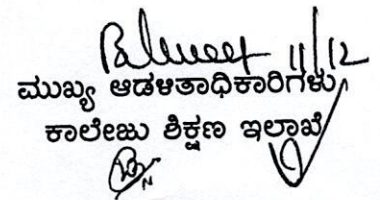 11/12
ಮುಖ್ಯ ಆಡಳಿತಾಧಿಕಾರಿಗಳು
ಕಾಲೇಜು ಶಿಕ್ಷಣ ಇಲಾಖೆ